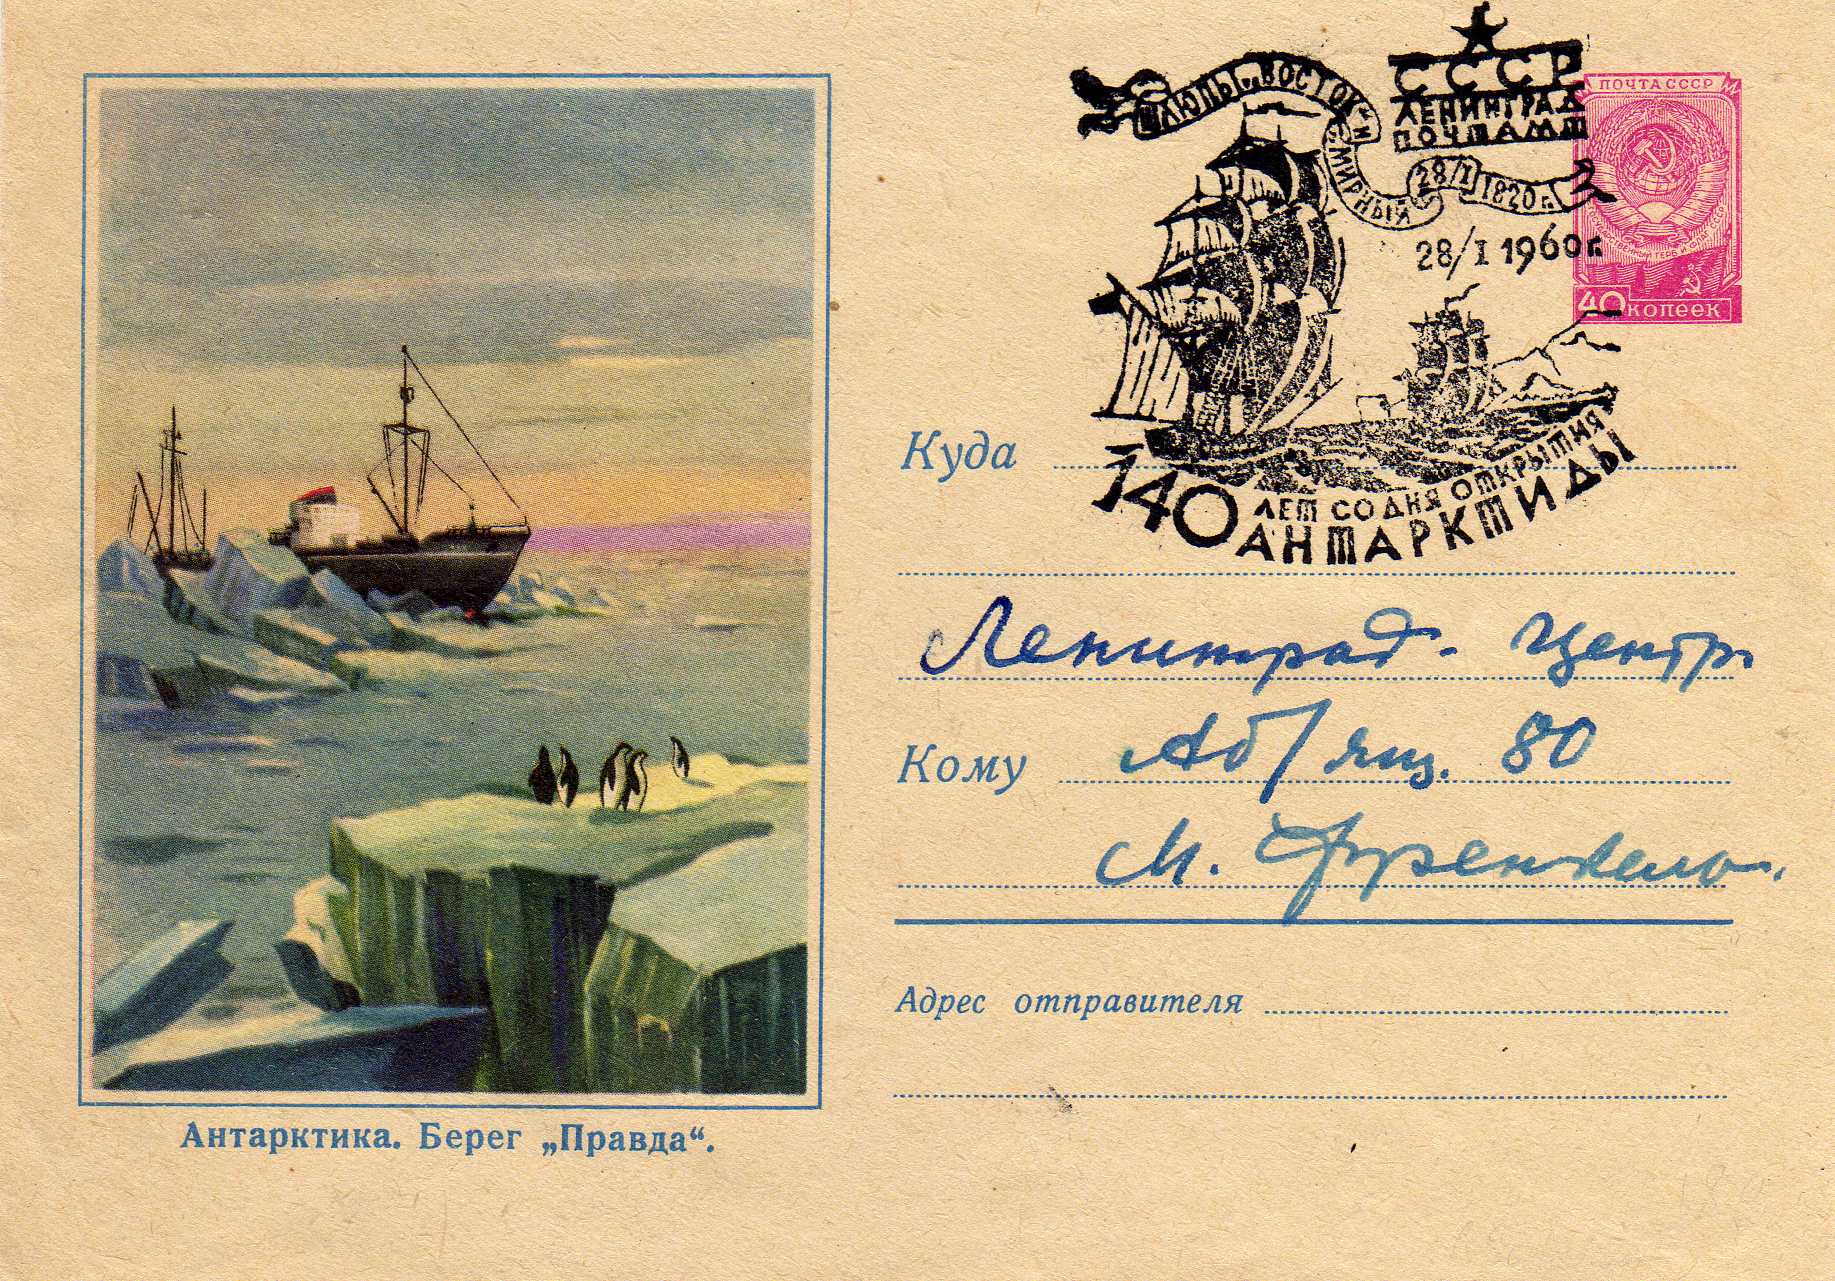 Шлюпы „Восток“ и „Мирный“ 28/I 1820 г.
СССР
ЛЕНИНГРАД
ПОЧТАМТ
28/I 1960 г.
140 ЛЕТ СО ДНЯ ОТКРЫТИЯ
АНТАРКТИДЫ
ПОЧТА СССР
40 КОПЕЕК
Куда
Ленинград - Центр
Кому Аб/ящ. 80
М. Френкелю.
Адрес отправителя
Антарктика. Берег „Правда“.